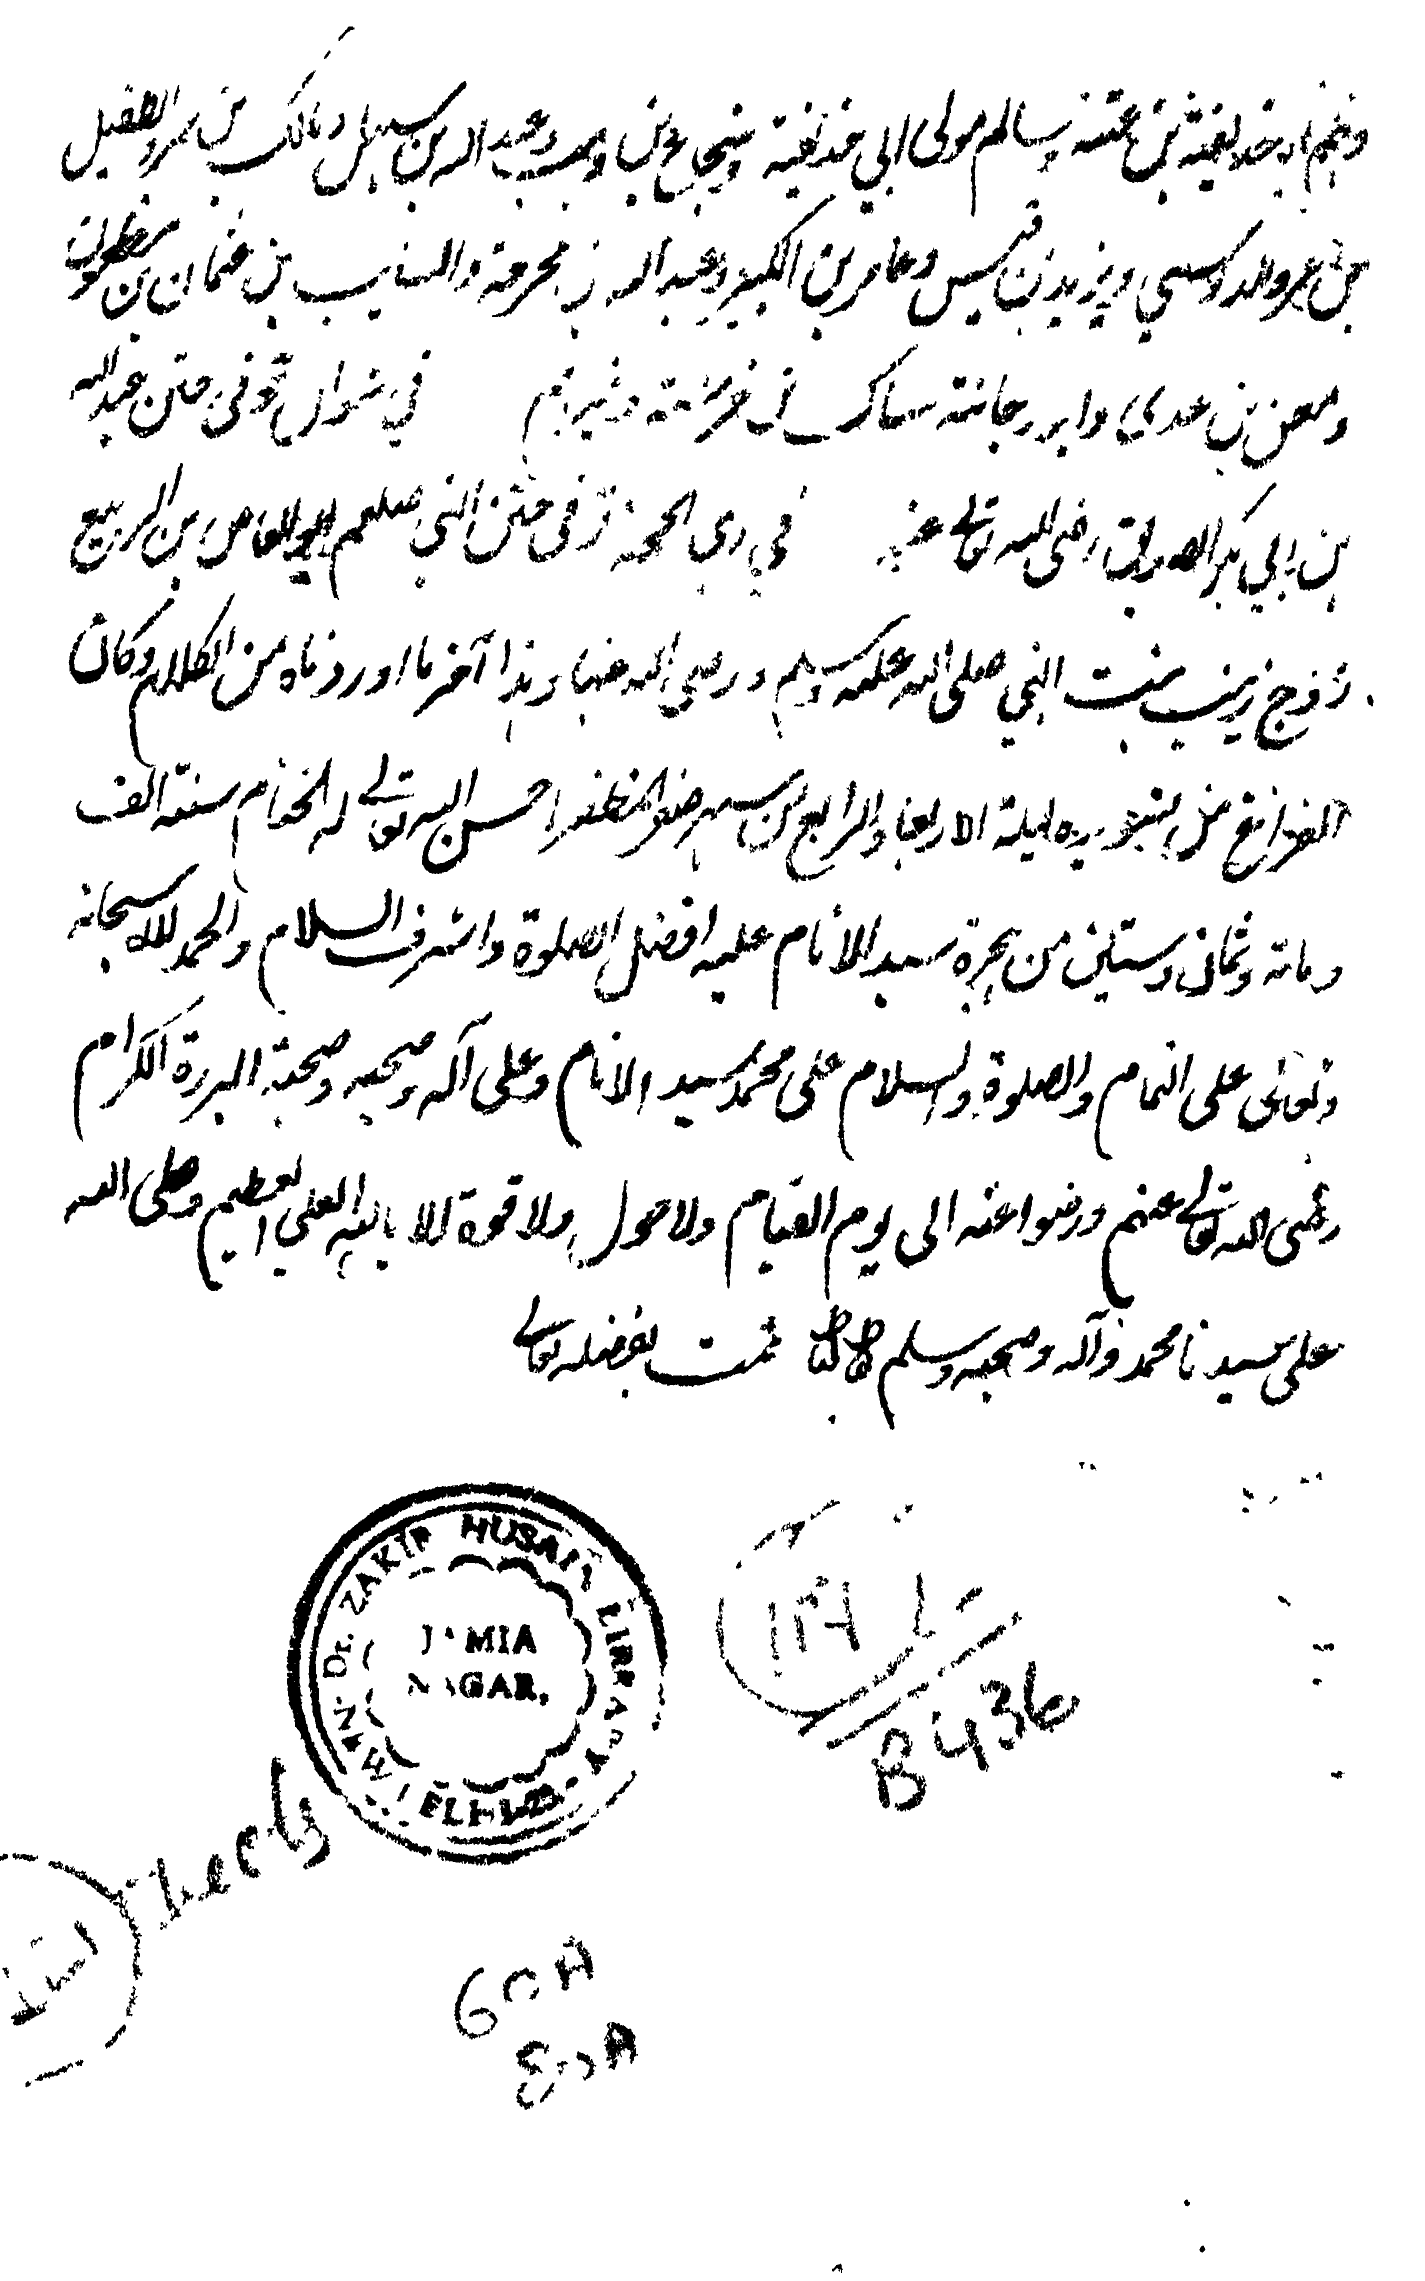 ومنهم ابو حذيفة بن عتبة وسالم مولى ابي حذيفة وشجاع بن وهب وعبد الله بن سهيل ومالك بن عمرو والطفيل
بن عمرو الدوسي ويزيد بن قيس وعامر بن البكير وعبد الله بن مخرمة والسايب بن عثمان بن مظعون
ومعن بن عدي وابو دجانة سماك بن خرشة وغيرهم في شوال توفى من عبد الله
بن ابي بكر الصديق رضى الله تعالے عنه في ذي الحجة توفى ختن النبي صلعم ابو العاص بن الربيع
زوج زينب بنت النبي صلى الله عليه وسلم ورضي الله عنها وهذا آخر ما اوردناه من الكلام وكان
الفراغ من تسويده ليلة الاربعاء الرابع من شهر صفر المظفر احسن الله تعالے له الختام سنة الف
ومائة وثمان وستين من هجرة سيد الانام عليه افضل الصلوة واشرف السلام والحمد لله سبحانه
وتعالى على التمام والصلوة والسلام على محمد سيد الانام وعلى آله وصحبه وصحبة البررة الكرام
رضى الله تعالے عنهم ورضوا عنه الى يوم القيام ولا حول ولا قوة الا بالله العلي العظيم وصلى الله
على سيدنا محمد وآله وصحبه وسلم تمت بفضله تعالے
DR. ZAKIR HUSAIN LIBRARY
JAMIA
NAGAR,
B436
60A
80A